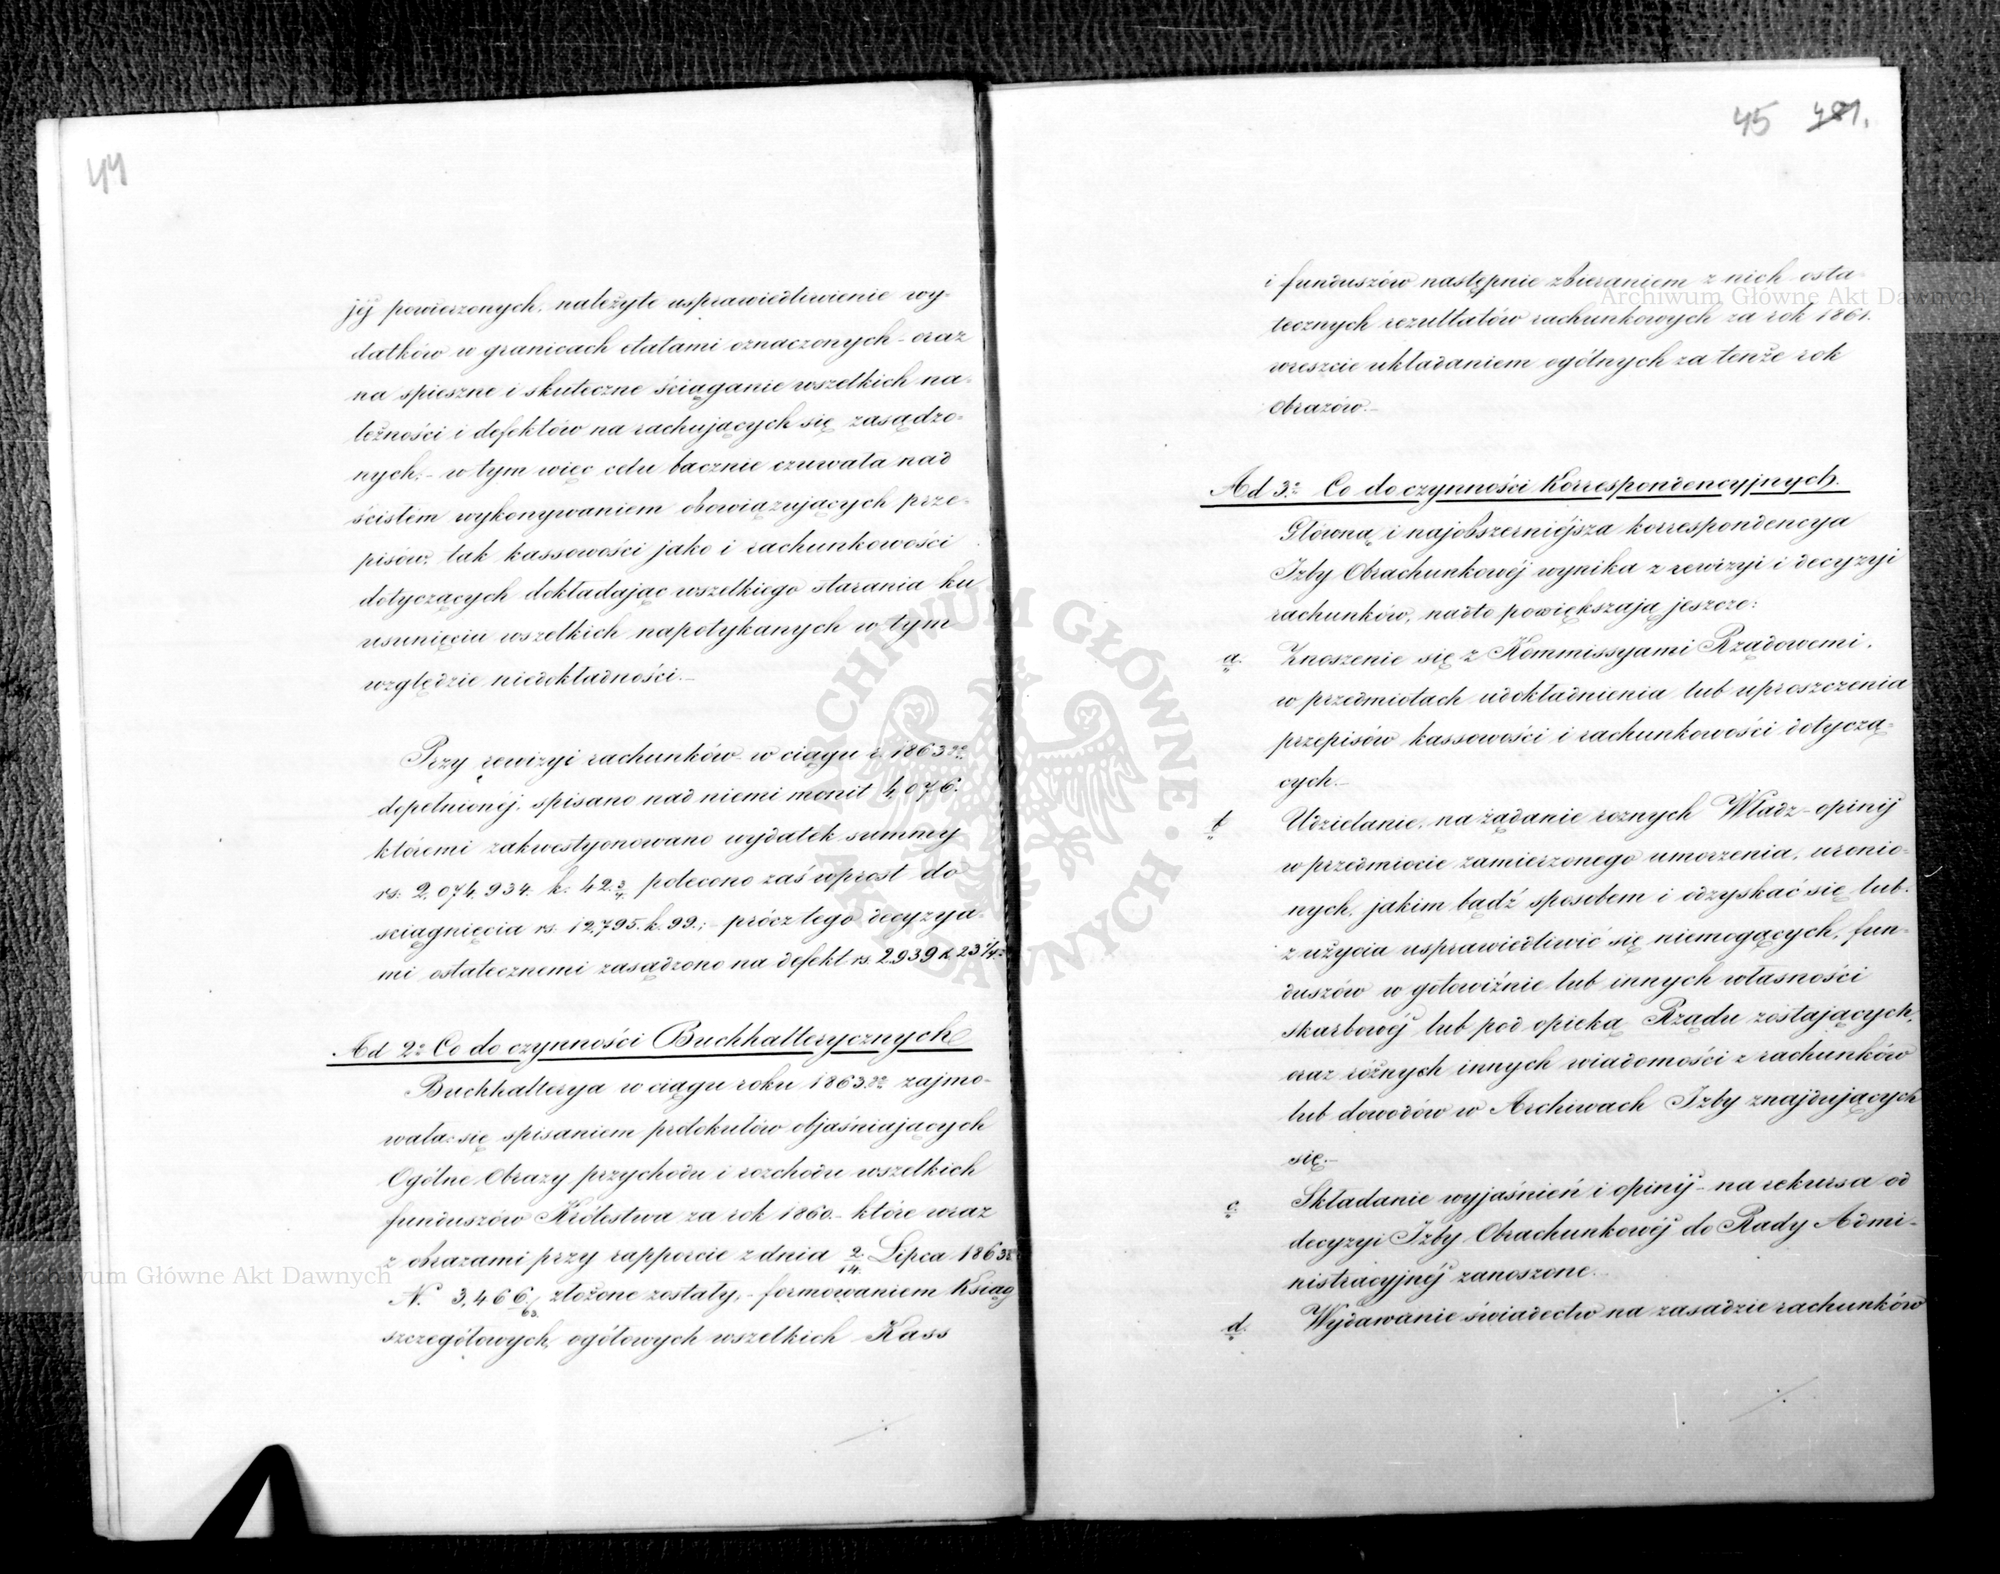 44
jéj powierzonych, należyte usprawiedliwienie wy-
datków w granicach etatami oznaczonych – oraz
na spieszne i skuteczne ściąganie wszelkich na-
leżności i defektów na rachujących się zasądzo-
nych; – w tym więc celu bacznie czuwała nad
ścisłém wykonywaniem obowiązujących prze-
pisów, tak kassowości jako i rachunkowości
dotyczących dokładając wszelkiego starania ku
usunięciu wszelkich napotykanych w tym
względzie niedokładności. –
Przy rewizyi rachunków w ciągu r. 1863go
dopełnionéj, spisano nad niemi monit 4,076.
któremi zakwestyonowano wydatek summy
rs. 2,074,934. k. 42 3/4 polecono zaś wprost do
ściągnięcia rs. 12,795. k. 99.; – prócz tego decyzya-
mi ostatecznemi zasądzono na defekt rs. 2,939 k. 23 1/4.
Ad 2o Co do czynności Buchhalterycznych
Buchhalterya w ciągu roku 1863go zajmo-
wała się spisaniem protokułów objaśniających
Ogólne Obrazy przychodu i rozchodu wszelkich
funduszów Królestwa za rok 1860. – które wraz
z obrazami przy rapporcie z dnia 2/14. Lipca 1863r.
N. 3,466/63. złożone zostały, – formowaniem Ksiąg
szczegółowych, ogółowych wszelkich Kass
45 481.
i funduszów następnie zbieraniem z nich osta-
tecznych rezultatów rachunkowych za rok 1861.
wreszcie układaniem ogólnych za tenże rok
Obrazów. –
Ad 3o Co do czynności Korrespondencyjnych.
Główna i najobszerniéjsza korrespondencya
Izby Obrachunkowéj wynika z rewizyi i decyzyi
rachunków, nadto powiększają jeszcze:
a. Znoszenie się z Kommissyami Rządowemi,
w przedmiotach udokładnienia lub uproszczenia
przepisów kassowości i rachunkowości dotyczą-
cych. –
b Udzielanie, na żądanie roznych Władz – opinij
w przedmiocie zamierzonego umorzenia, uronio-
nych, jakim bądź sposobem i odzyskać się lub
z użycia usprawiedliwić się niemogących, fun-
duszów w gotowiźnie lub innych własności
skarbowéj lub pod opieką Rządu zostających,
oraz różnych innych wiadomości z rachunków
lub dowodów w Archiwach Izby znajdujących
się. –
c. Składanie wyjaśnień i opinij – na rekursa od
decyzyi Izby Obrachunkowéj do Rady Admi-
nistracyjnéj zanoszone.
d. Wydawanie świadectw na zasadzie rachunków
Archiwum Główne Akt Dawnych
Archiwum Główne Akt Dawnych
ARCHIWUM GŁÓWNE • AKT DAWNYCH •